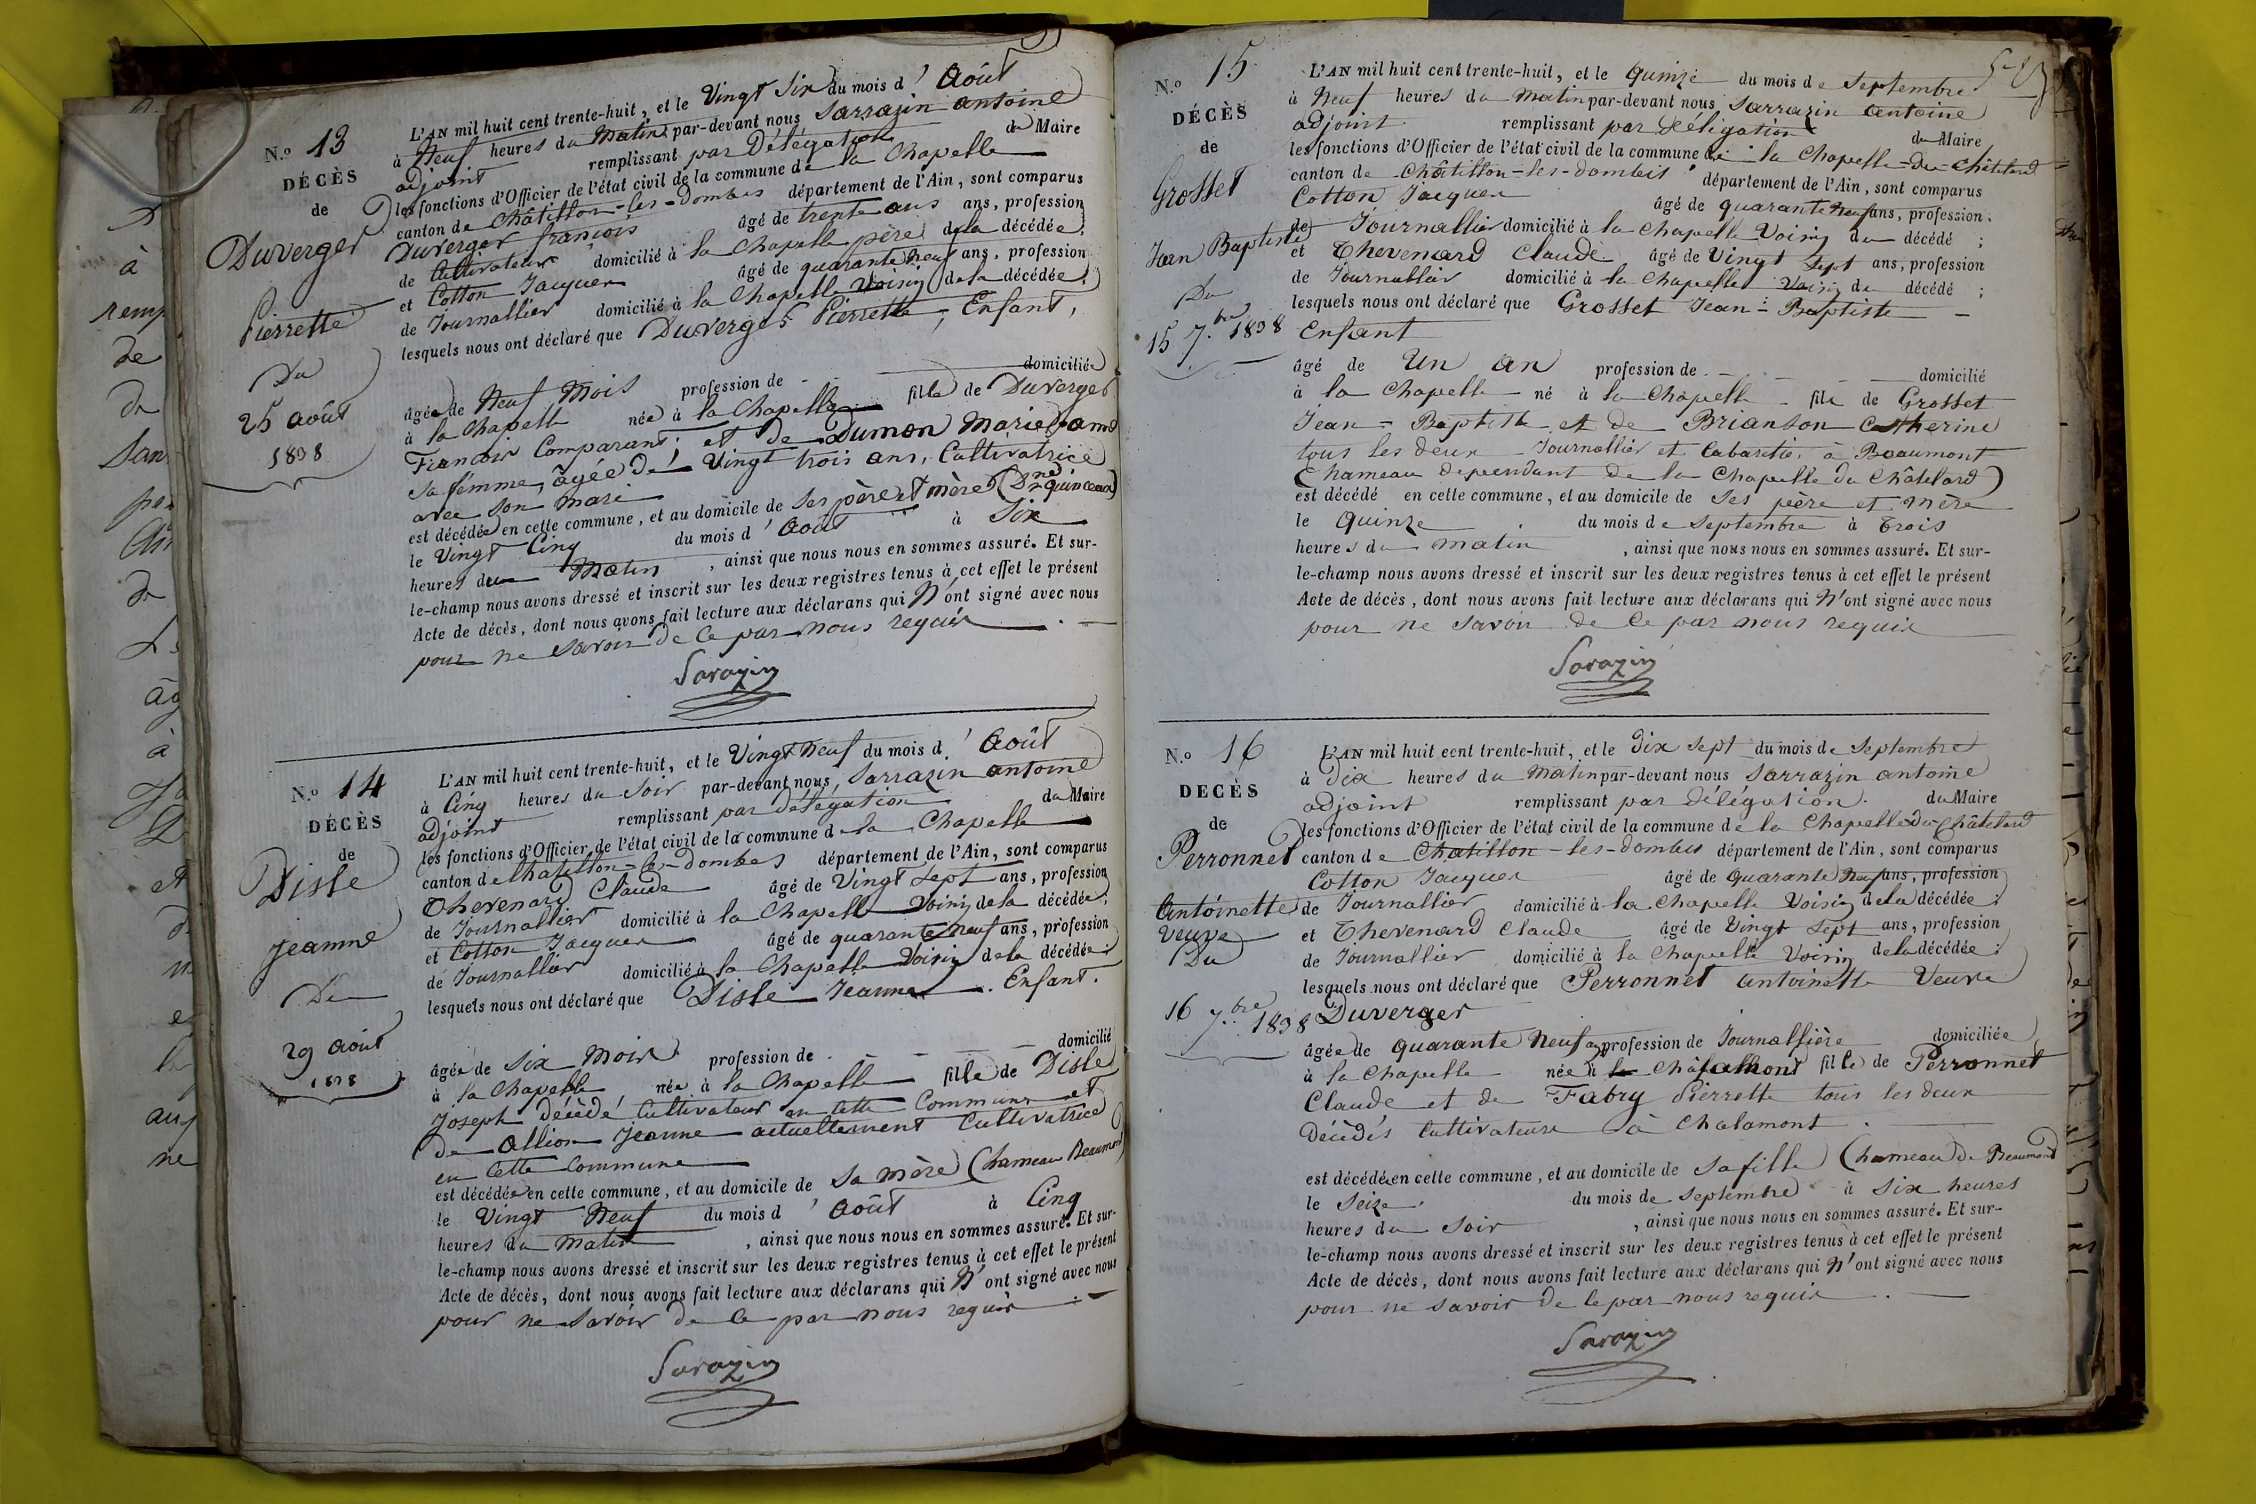 N.o 13
DÉCÈS
de
Duverger
Pierrette
Du
25 août
1838
L'AN mil huit cent trente-huit, et le Vingt Six du mois d'Août
à Neuf heures du Matin par-devant nous Sarrazin antoine
adjoint remplissant par Délégation du Maire
les fonctions d'Officier de l'état civil de la commune de la Chapelle
canton de Châtillon-les-dombes département de l'Ain, sont comparus
Duverger françois âgé de trente ans ans, profession
de Cultivateur domicilié à la Chapelle père de la décédée;
et Cotton Jacques âgé de quarante neuf ans, profession
de Journallier domicilié à la Chapelle Voisin de la décédée;
lesquels nous ont déclaré que Duverger Pierrette, Enfant,
âgée de Neuf Mois profession de - domiciliée
à la Chapelle née à la Chapelle fille de Duverger
François Comparant; et de Dumon Marie
sa femme, âgée de Vingt trois ans, Cultivatrice
avec son mari
est décédée en cette commune, et au domicile de ses père et mère
le Vingt Cinq du mois d'Août à Six
heures du Matin, ainsi que nous nous en sommes assuré. Et sur-
le-champ nous avons dressé et inscrit sur les deux registres tenus à cet effet le présent
Acte de décès, dont nous avons fait lecture aux déclarans qui N'ont signé avec nous
pour ne savoir de ce par nous requis
Sarazin
N.o 14
DÉCÈS
de
Disle
Jeanne
Du
29 août
1838
L'AN mil huit cent trente-huit, et le Vingt Neuf du mois d'Août
à Cinq heures du Soir par-devant nous, Sarrazin antoine
adjoint remplissant par délégation du Maire
les fonctions d'Officier de l'état civil de la commune de la Chapelle
canton de Chatillon-les-dombes département de l'Ain, sont comparus
Thevenard Claude âgé de Vingt Sept ans, profession
de Journallier domicilié à la Chapelle Voisin de la décédée;
et Cotton Jacques âgé de quarante neuf ans, profession
de Journallier domicilié à la Chapelle Voisin de la décédée;
lesquels nous ont déclaré que Disle Jeanne. Enfant.
âgée de Six Mois profession de - domicilié
à la Chapelle née à la Chapelle fille de Disle
Joseph Décédé Cultivateur en cette Commune et
de Allion Jeanne actuellement Cultivatrice
en cette Commune
est décédée en cette commune, et au domicile de sa mère (hameau Beaumont)
le Vingt Neuf du mois d'Août à Cinq
heures du Matin, ainsi que nous nous en sommes assuré. Et sur-
le-champ nous avons dressé et inscrit sur les deux registres tenus à cet effet le présent
Acte de décès, dont nous avons fait lecture aux déclarans qui N'ont signé avec nous
pour ne savoir de ce par nous requis
Sarazin
N.o 15
DÉCÈS
de
Grosset
Jean Baptiste
Du
15 7.bre 1838
L'AN mil huit cent trente-huit, et le quinze du mois de Septembre
à Neuf heures du Matin par-devant nous Sarrazin antoine
adjoint remplissant par Délégation du Maire
les fonctions d'Officier de l'état civil de la commune de la Chapelle-du-Châtelard
canton de Châtillon-les-dombes département de l'Ain, sont comparus
Cotton Jacques âgé de quarante Neuf ans, profession
de Journallier domicilié à la Chapelle Voisin du décédé;
et Thevenard Claude âgé de Vingt Sept ans, profession
de Journallier domicilié à la Chapelle Voisin du décédé;
lesquels nous ont déclaré que Grosset Jean-Baptiste
Enfant
âgé de Un an profession de - domicilié
à la Chapelle né à la Chapelle fils de Grosset
Jean-Baptiste et de Brianson Catherine
tous les deux Journallier et Cabaretier à Beaumont
(hameau dependant de la Chapelle du Châtelard)
est décédé en cette commune, et au domicile de Ses père et mère
le Quinze du mois de Septembre à Trois
heures du matin, ainsi que nous nous en sommes assuré. Et sur-
le-champ nous avons dressé et inscrit sur les deux registres tenus à cet effet le présent
Acte de décès, dont nous avons fait lecture aux déclarans qui N'ont signé avec nous
pour ne savoir de ce par nous requis
Sarazin
N.o 16
DECÈS
de
Perronnet
Antoinette
Veuve
Du
16 7.bre 1838
L'AN mil huit cent trente-huit, et le Dix Sept du mois de Septembre
à Dix heures du Matin par-devant nous Sarrazin antoine
adjoint remplissant par délégation. du Maire
les fonctions d'Officier de l'état civil de la commune de la Chapelle du Châtelard
canton de Chatillon-les-dombes département de l'Ain, sont comparus
Cotton Jacques âgé de quarante Neuf ans, profession
de Journallier domicilié à la Chapelle Voisin de la décédée;
et Thevenard Claude âgé de Vingt Sept ans, profession
de Journallier domicilié à la Chapelle Voisin de la décédée;
lesquels nous ont déclaré que Perronnet antoinette Veuve
Duverger
âgée de quarante Neuf ans profession de Journallière domiciliée
à la Chapelle née à fille de Perronnet
Claude et de Fabry Pierrette tous les deux
Décédés Cultivateurs à Chalamont.
est décédée en cette commune, et au domicile de Sa fille (hameau de Beaumont
le Seize du mois de Septembre à Six heures
heures du Soir, ainsi que nous nous en sommes assuré. Et sur-
le-champ nous avons dressé et inscrit sur les deux registres tenus à cet effet le présent
Acte de décès, dont nous avons fait lecture aux déclarans qui N'ont signé avec nous
pour ne savoir de ce par nous requis.
Sarazin